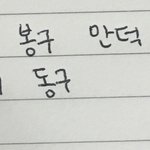 봉구 안덕
동구